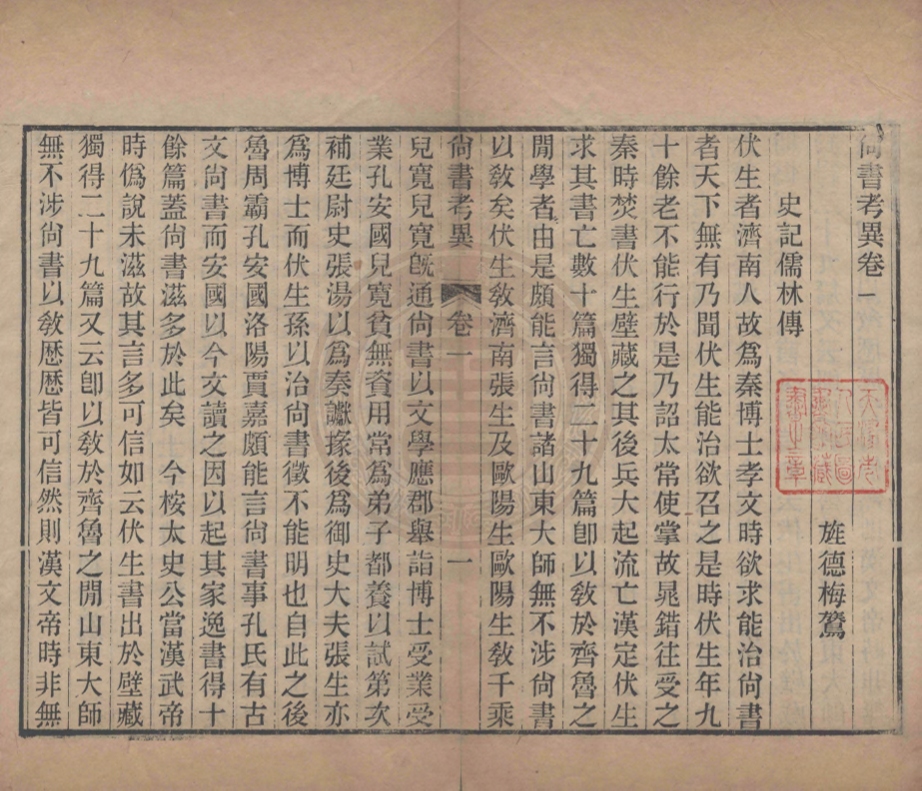 尙書考異卷一
旌德梅鷟
史記儒林傳
伏生者濟南人故爲秦博士孝文時欲求能治尙書
者天下無有乃聞伏生能治欲召之是時伏生年九
十餘老不能行於是乃詔太常使掌故晁錯往受之
秦時焚書伏生壁藏之其後兵大起流亡漢定伏生
求其書亡數十篇獨得二十九篇卽以敎於齊魯之
閒學者由是頗能言尙書諸山東大師無不涉尙書
以敎矣伏生敎濟南張生及歐陽生歐陽生敎千乘
尙書考異 卷一 一
兒寬兒寬旣通尙書以文學應郡舉詣博士受業受
業孔安國兒寬貧無資用常爲弟子都養以試第次
補廷尉史張湯以爲奏讞掾後爲御史大夫張生亦
爲博士而伏生孫以治尙書徵不能明也自此之後
魯周霸孔安國洛陽賈嘉頗能言尙書事孔氏有古
文尙書而安國以今文讀之因以起其家逸書得十
餘篇蓋尙書滋多於此矣 今桉太史公當漢武帝
時僞說未滋故其言多可信如云伏生書出於壁藏
獨得二十九篇又云卽以敎於齊魯之閒山東大師
無不涉尙書以敎歷歷皆可信然則漢文帝時非無